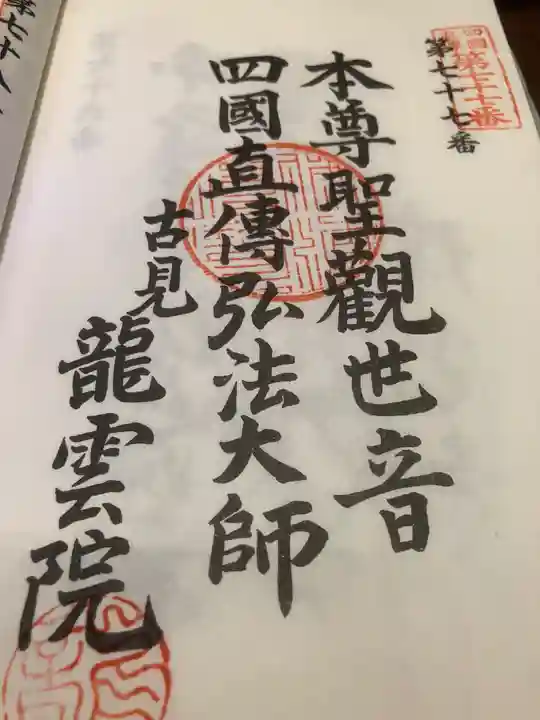 四國
第七十七番
第七十七番
本尊聖觀世音
四國直傳弘法大師
古見
龍雲院
第七十八